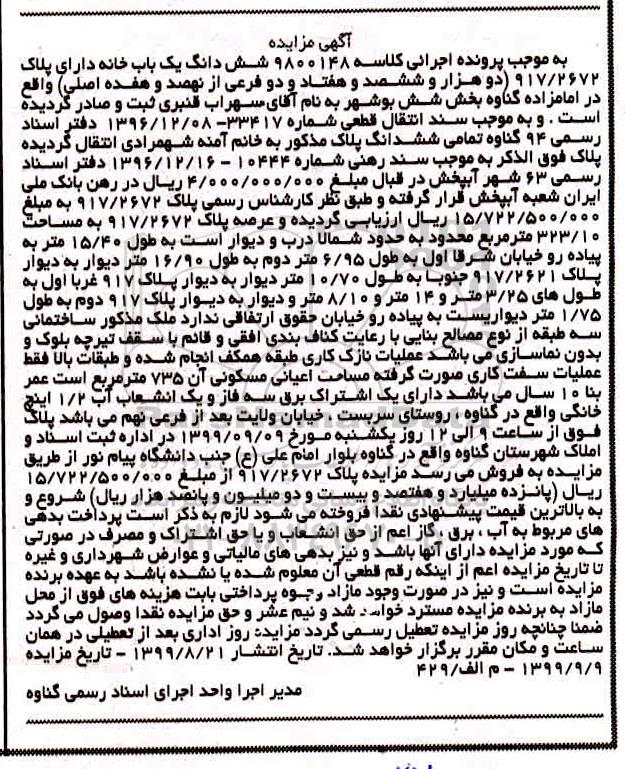 آگهی مزایده
به موجب پرونده اجرائی کلاسه ۹۸۰۰۱۴۸ شش دانگ یک باب خانه دارای پلاک
۹۱۷/۲۶۷۲ (دو هزار و ششصد و هفتاد و دو فرعی از نهصد و هفده اصلی) واقع
در امامزاده گناوه بخش شش بوشهر به نام آقای سهراب قنبری ثبت و صادر گردیده
است . و به موجب سند انتقال قطعی شماره ۳۳۴۱۷- ۱۳۹۶/۱۲/۰۸ دفتر اسناد
رسمی ۹۴ گناوه تمامی ششدانگ پلاک مذکور به خانم آمنه شهمرادی انتقال گردیده
پلاک فوق الذکر به موجب سند رهنی شماره ۱۰۴۴۴ - ۱۳۹۶/۱۲/۱۶ دفتر اسناد
رسمی ۶۳ شهر آبپخش در قبال مبلغ ۴/۰۰۰/۰۰۰/۰۰۰ ریال در رهن بانک ملی
ایران شعبه آبپخش قرار گرفته و طبق نظر کارشناس رسمی پلاک ۹۱۷/۲۶۷۲ به مبلغ
۱۵/۷۲۲/۵۰۰/۰۰۰ ریال ارزیابی گردیده و عرصه پلاک ۹۱۷/۲۶۷۲ به مساحت
۳۲۳/۱۰ مترمربع محدود به حدود شمالا درب و دیوار است به طول ۱۵/۴۰ متر به
پیاده رو خیابان شرقا اول به طول ۶/۹۵ متر دوم به طول ۱۶/۹۰ متر دیوار به دیوار
پلاک ۹۱۷/۲۶۲۱ جنوبا به طول ۱۰/۷۰ متر دیوار به دیوار پلاک ۹۱۷ غربا اول به
طول های ۳/۲۵ متر و ۱۴ متر و ۸/۱۰ متر و دیوار به دیوار پلاک ۹۱۷ دوم به طول
۱/۷۵ متر دیواریست به پیاده رو خیابان حقوق ارتفاقی ندارد ملک مذکور ساختمانی
سه طبقه از نوع مصالح بنایی با رعایت کناف بندی افقی و قائم با سقف تیرچه بلوک و
بدون نماسازی می باشد عملیات نازک کاری طبقه همکف انجام شده و طبقات بالا فقط
عملیات سفت کاری صورت گرفته مساحت اعیانی مسکونی آن ۷۳۵ مترمربع است عمر
بنا ۱۰ سال می باشد دارای یک اشتراک برق سه فاز و یک انشعاب آب ۱/۲ اینچ
خانگی واقع در گناوه ، روستای سربست ، خیابان ولایت بعد از فرعی نهم می باشد پلاک
فوق از ساعت ۹ الی ۱۲ روز یکشنبه مورخ ۱۳۹۹/۰۹/۰۹ در اداره ثبت اسناد و
املاک شهرستان گناوه واقع در گناوه بلوار امام علی (ع) جنب دانشگاه پیام نور از طریق
مزایده به فروش می رسد مزایده پلاک ۹۱۷/۲۶۷۲ از مبلغ ۱۵/۷۲۲/۵۰۰/۰۰۰
ریال (پانزده میلیارد و هفتصد و بیست و دو میلیون و پانصد هزار ریال) شروع و
به بالاترین قیمت پیشنهادی نقدا فروخته می شود لازم به ذکر است پرداخت بدهی
های مربوط به آب ، برق ، گاز اعم از حق انشعاب و یا حق اشتراک و مصرف در صورتی
که مورد مزایده دارای آنها باشد و نیز بدهی های مالیاتی و عوارض شهرداری و غیره
تا تاریخ مزایده اعم از اینکه رقم قطعی آن معلوم شده یا نشده باشد به عهده برنده
مزایده است و نیز در صورت وجود مازاد وجوه پرداختی بابت هزینه های فوق از محل
مازاد به برنده مزایده مسترد خواهد شد و نیم عشر و حق مزایده نقدا وصول می گردد
ضمنا چنانچه روز مزایده تعطیل رسمی گردد مزایده روز اداری بعد از تعطیلی در همان
ساعت و مکان مقرر برگزار خواهد شد. تاریخ انتشار ۱۳۹۹/۸/۲۱ - تاریخ مزایده
۱۳۹۹/۹/۹ - م الف/۴۲۹
مدیر اجرا واحد اجرای اسناد رسمی گناوه